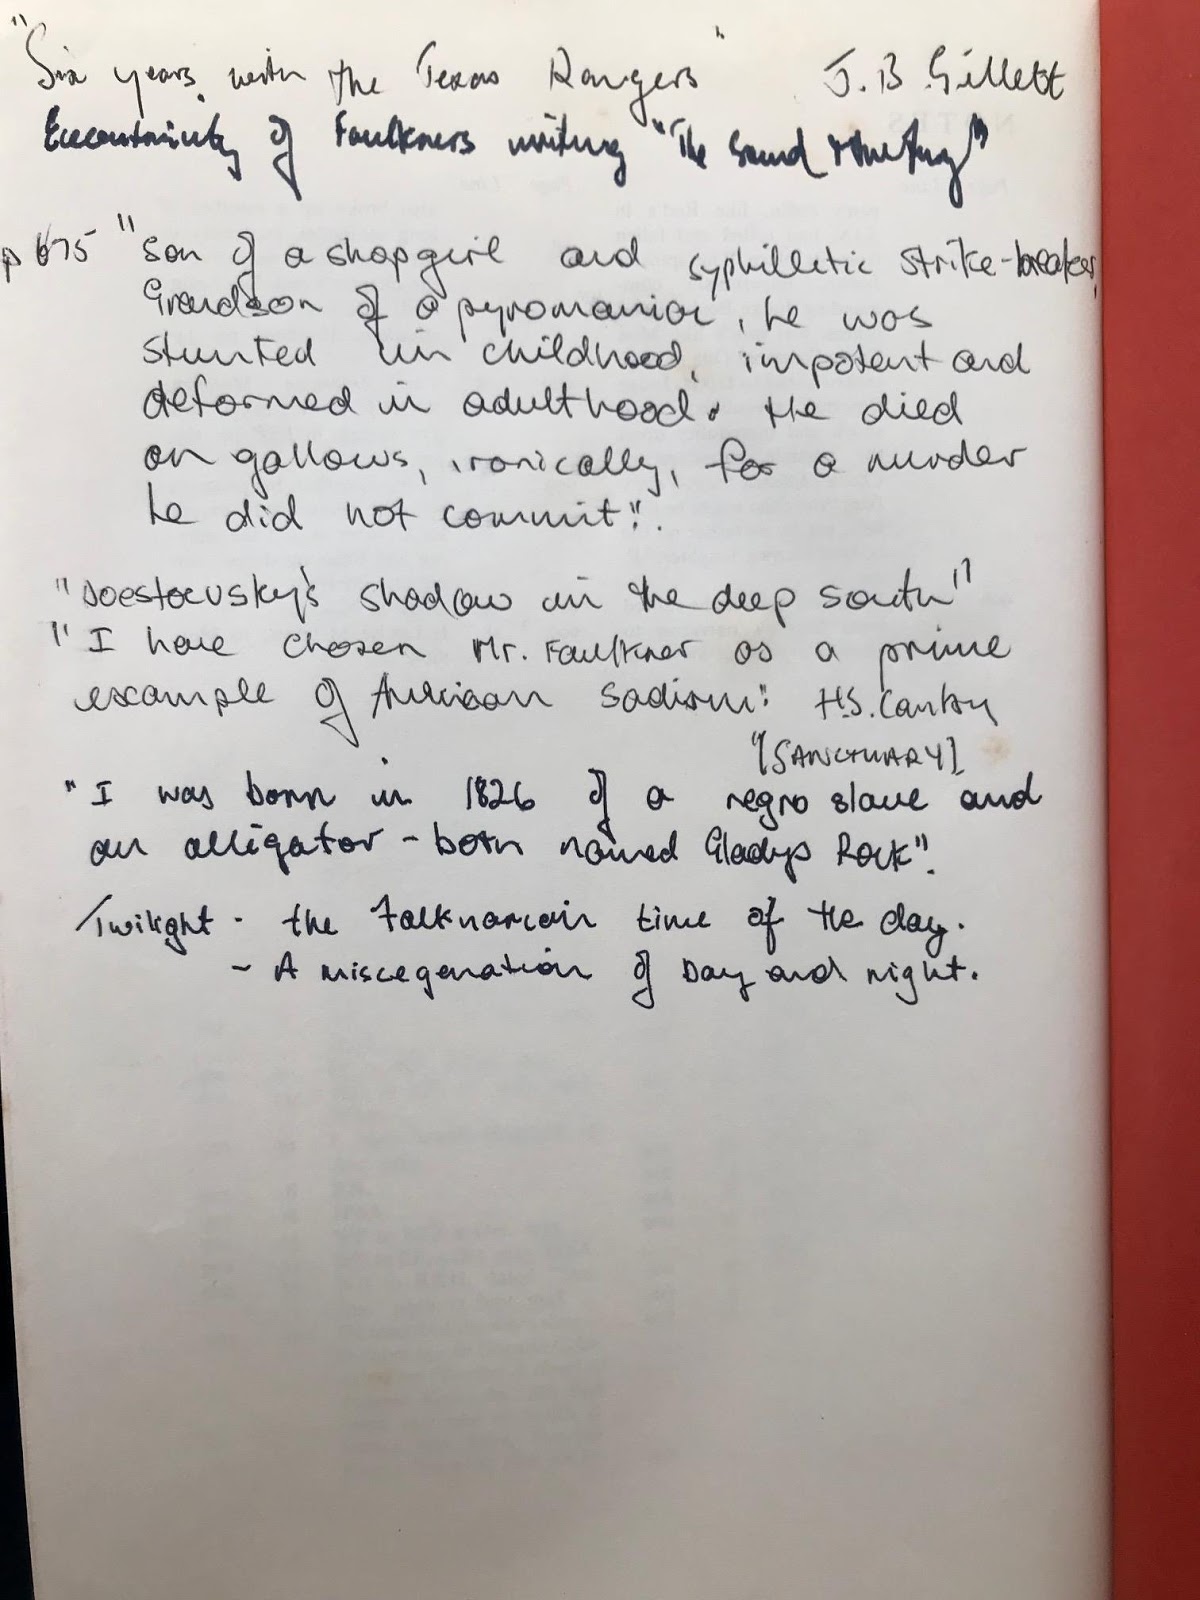 "Six years with the Texas Rangers" J. B Gillett
Eccentricity of Faulkners writing "The Sound & the Fury"
p 675 "son of a shopgirl and syphilletic strike-breaker,
Grandson of a pyromaniac, he was
stunted in childhood, impotent and
deformed in adulthood. He died
on gallows, ironically, for a murder
he did not commit".
"Doestoevsky's shadow in the deep south"
"I have chosen Mr. Faulkner as a prime
example of American Sadism". H.S. Canby
"[SANCTUARY]
"I was born in 1826 of a negro slave and
an alligator - both named Gladys Rock".
Twilight - the Falknarian time of the day.
- A miscegenation of Day and night.